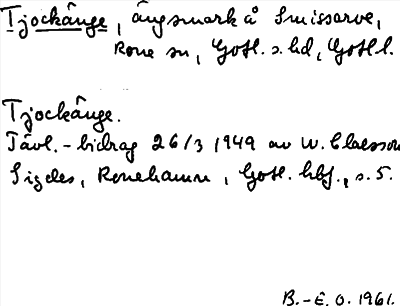 Tjockänge, ängsmark å Smissarve,
Rone sn, Gotl. s. hd, Gotl. l.
Tjockänge.
Tävl.-bidrag 26/3 1949 av W. Claesson
Sigdes, Ronehamn, Gotl. hbf., s. 5.
B.-E. O. 1961.